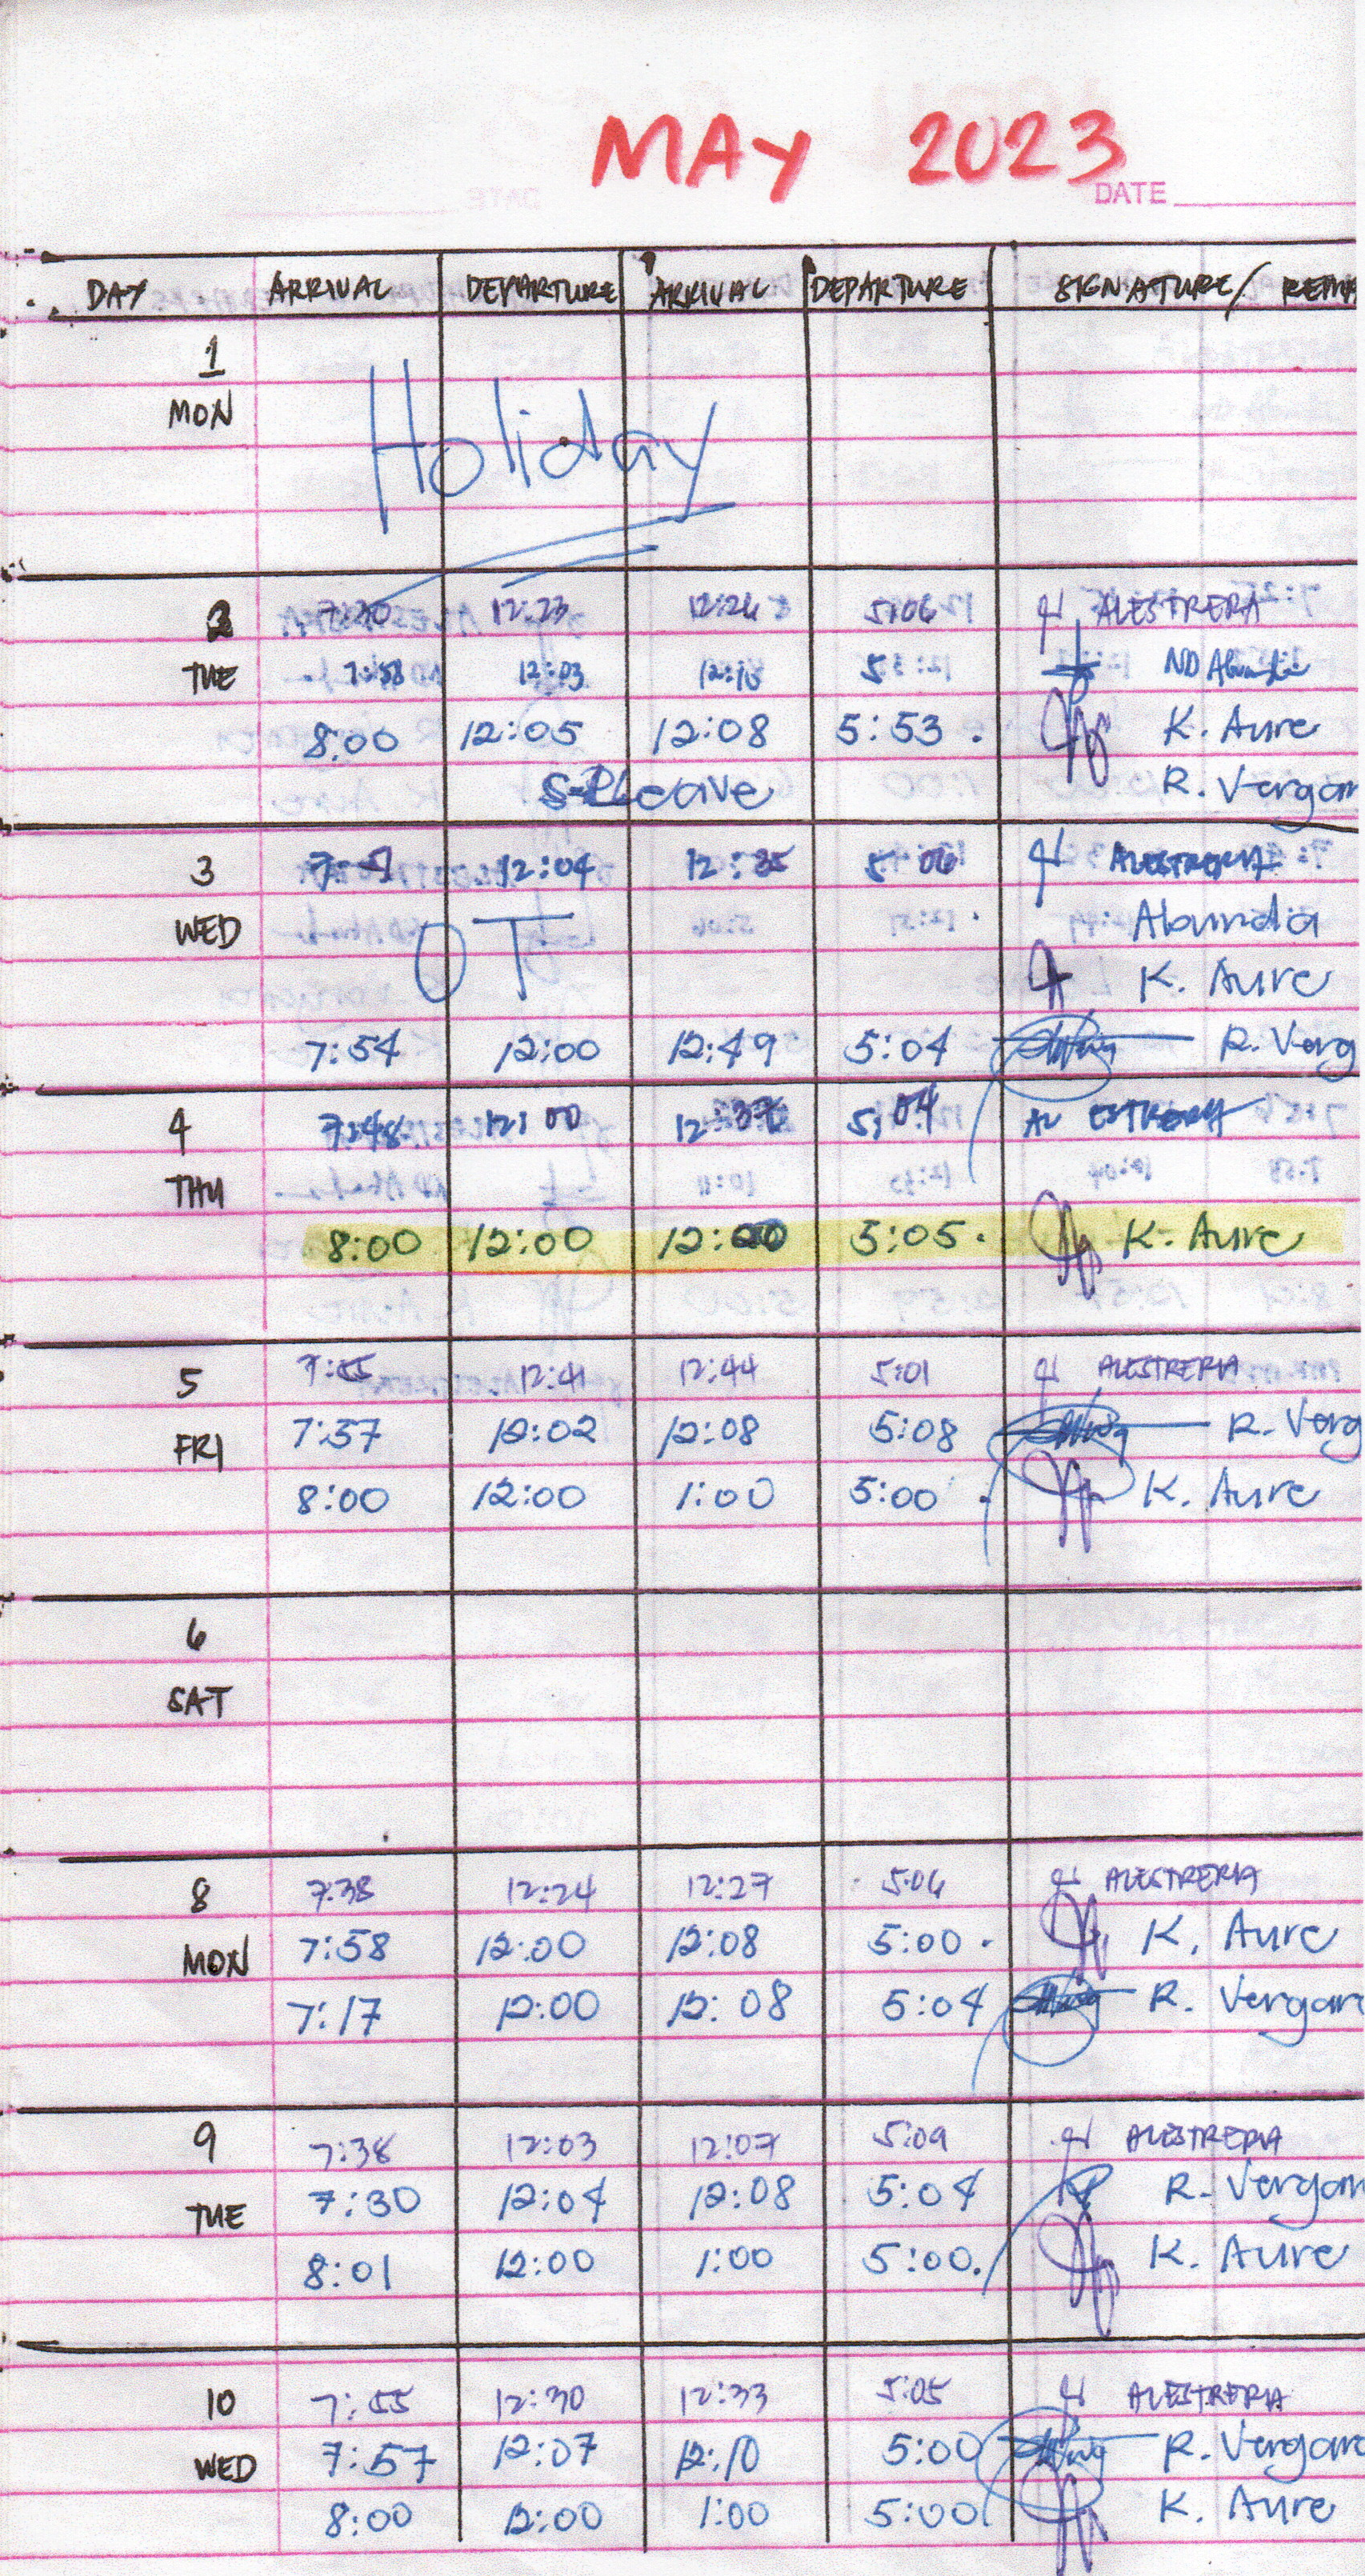 MAY 2023
DATE
DAY ARRIVAL DEPARTURE ARRIVAL DEPARTURE SIGNATURE/
1
MON
Holiday
2 7:30 12:23 12:26 5:06 ALESTRERA
TUE 7:58 12:03 ND
8:00 12:05 12:08 5:53 K. Aure
Leave R. Vergar
3 12:04 12:35 5 06 ALESTRERIA
WED Abundia
OT K. Aure
7:54 12:00 12:49 5:04 R. Verg
4 7:48 12:00 12:37 5:04
THU
8:00 12:00 5:05 K. Aure
5 7:55 12:41 12:44 5:01 ALESTRERIA
FRI 7:57 12:02 12:08 5:08 R. Verg
8:00 12:00 1:00 5:00 K. Aure
6
SAT
8 7:38 12:24 12:27 5:06 ALESTRERIA
MON 7:58 12:00 12:08 5:00 K. Aure
7:17 12:00 12:08 5:04 R. Vergara
9 7:38 12:03 12:07 5:09 ALESTRERIA
TUE 7:30 12:04 12:08 5:04 R. Vergara
8:01 12:00 1:00 5:00 K. Aure
10 7:55 12:30 12:33 5:05 ALESTRERIA
WED 7:57 12:07 12:10 5:00 R. Vergara
8:00 12:00 1:00 5:00 K. Aure